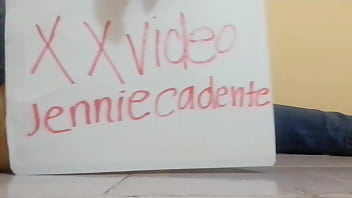 XXvideo
Jenniecadente